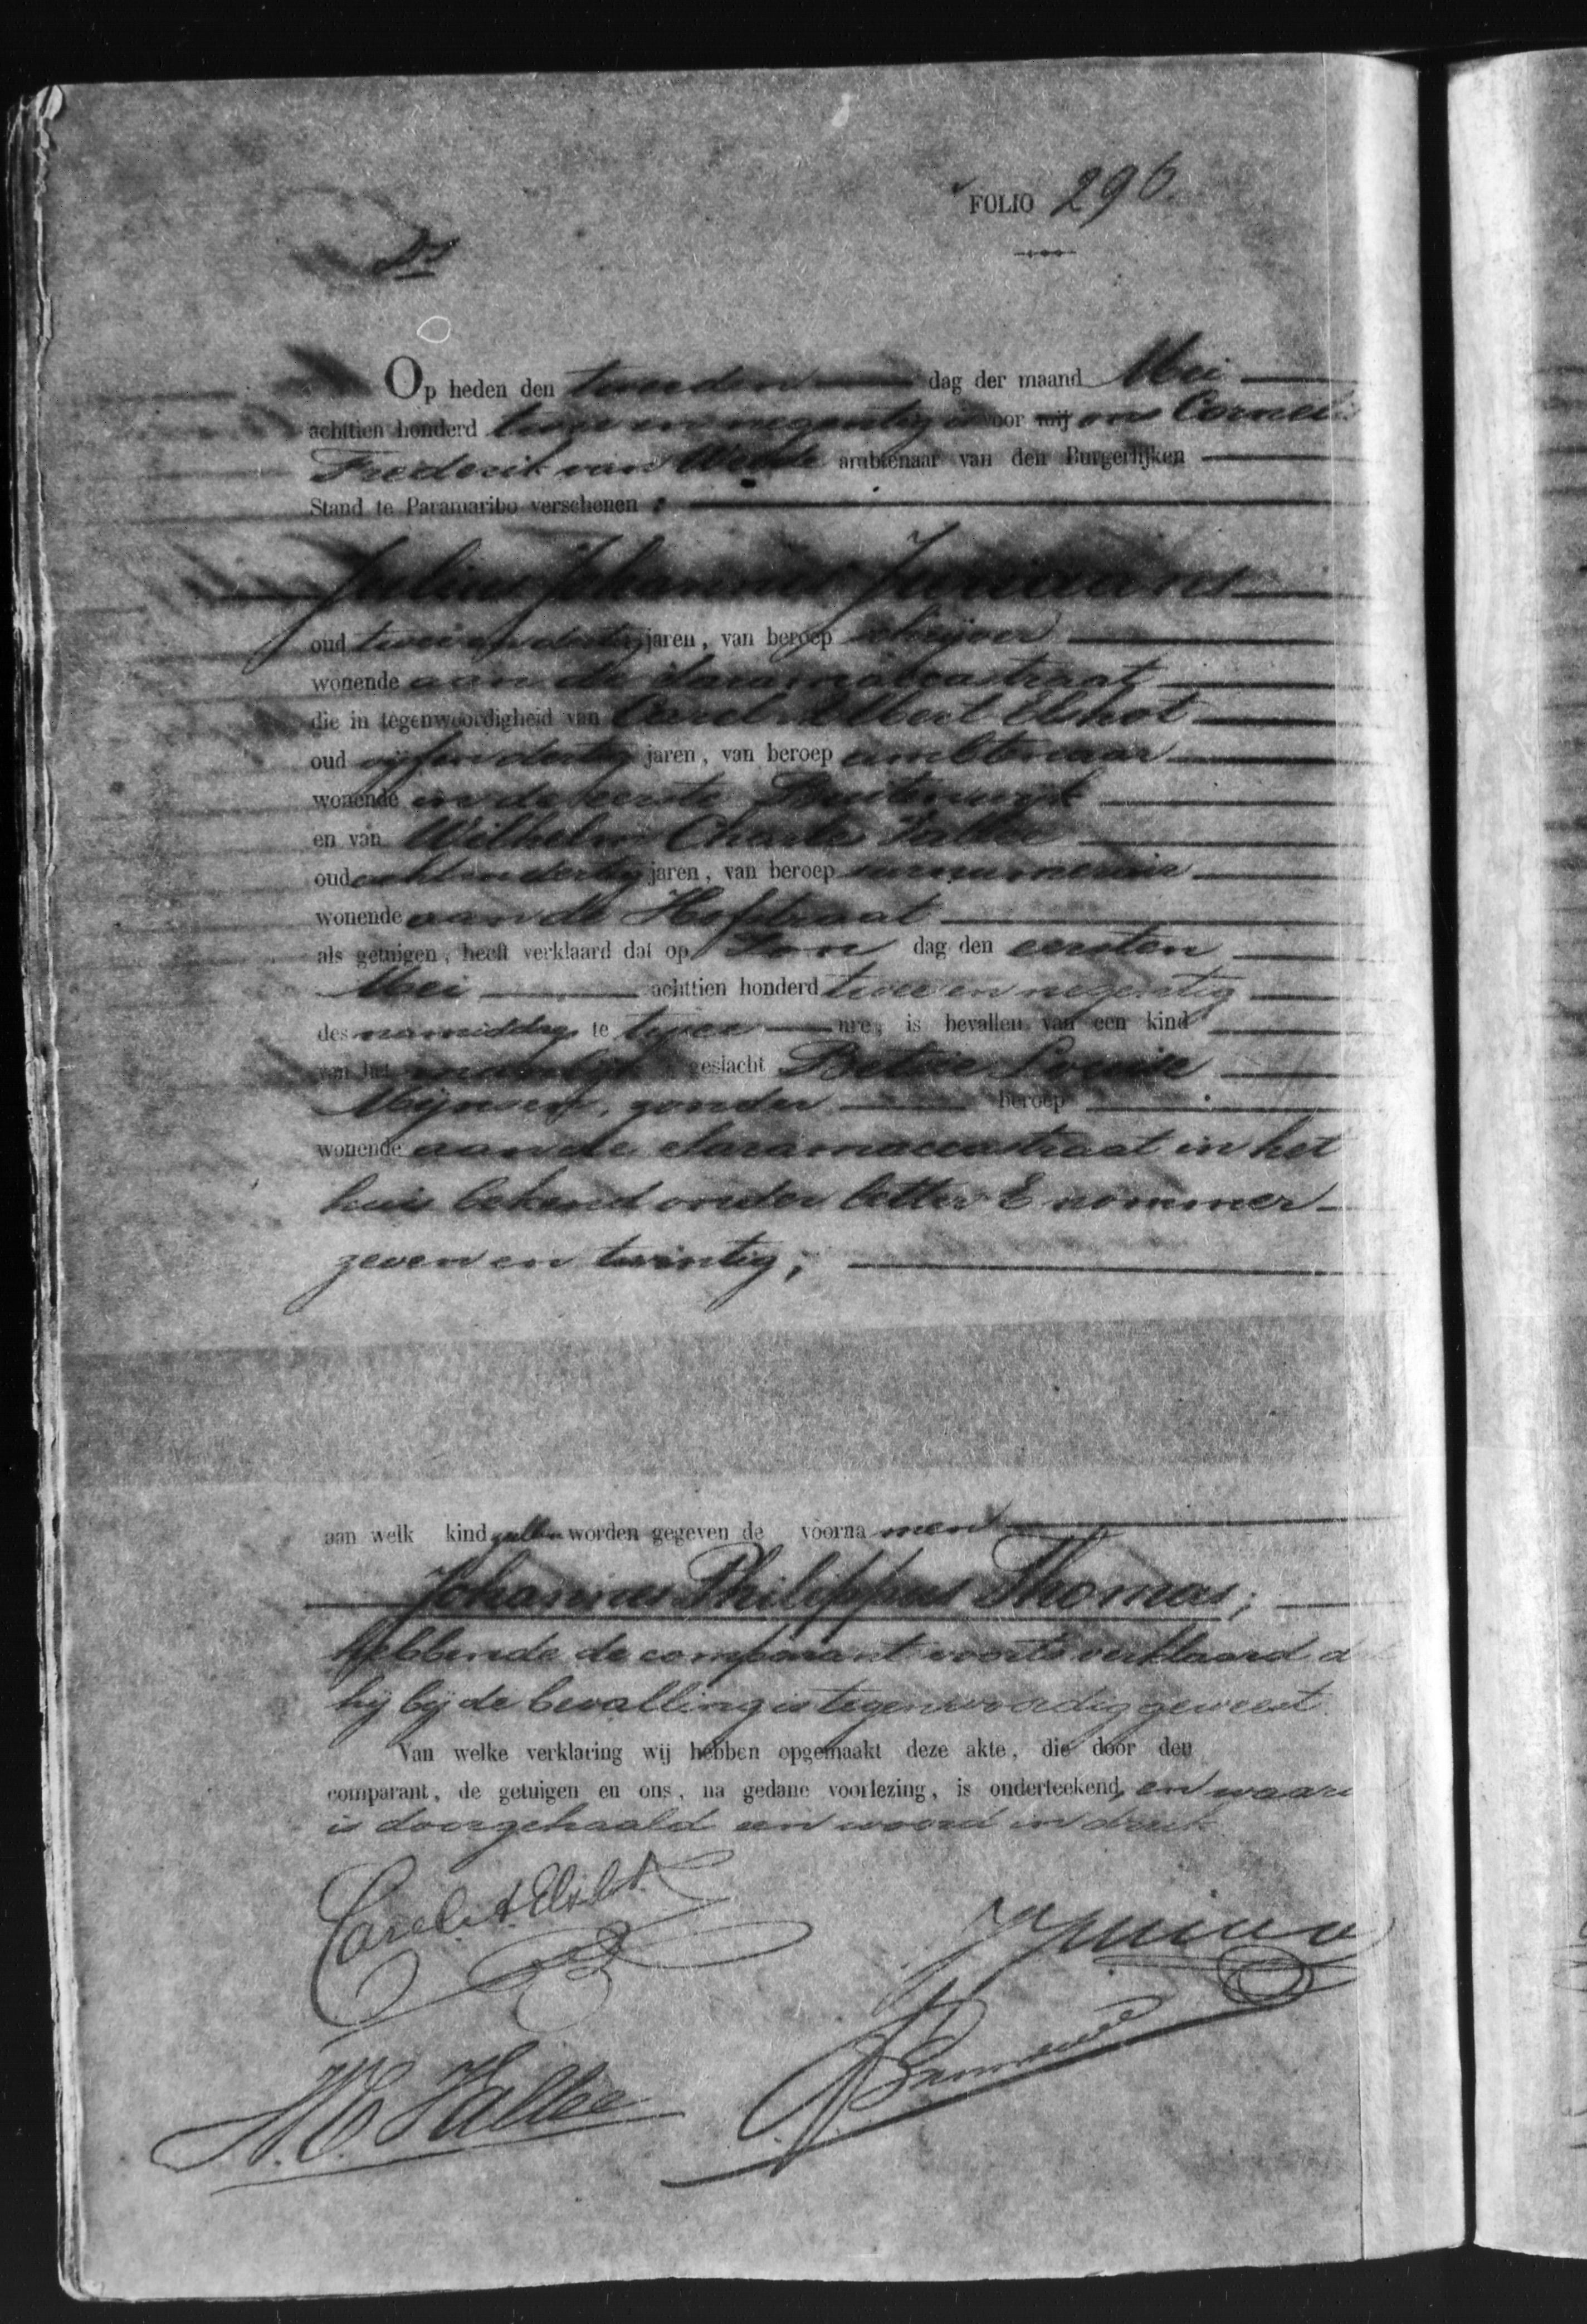 FOLIO 296.
Op heden den tweeden dag der maand Mei
achttien honderd twee en negentig is voor mij ons Cornelis
Frederik van ambtenaar van den Burgerlijken
Stand te Paramaribo verschenen :
Julius Johannes Juriaans
oud twee en dertig jaren, van beroep schrijver
wonende aan de Saramaccastraat
die in tegenwoordigheid van Carel Albert
oud vijf en dertig jaren, van beroep ambtenaar
wonende in de eerste Buitenwijk
en van Wilhelm Charles
oud acht en dertig jaren, van beroep surnumerair
wonende aan de Hofstraat
als getuigen, heeft verklaard dat op Zon dag den eersten
Mei achttien honderd twee en negentig
des namiddags te twee ure, is bevallen van een kind
van het mannelijk geslacht Betsie Louise
zonder beroep
wonende aan de Saramaccastraat in het
huis bekend onder letter E nommer
zeven en twintig;
aan welk kind zullen worden gegeven de voorna men
Johannes Philippus Thomas;
hebbende de comparant voorts verklaard dat
hij bij de bevalling is tegenwoordig geweest.
Van welke verklaring wij hebben opgemaakt deze akte, die door den
comparant, de getuigen en ons, na gedane voorlezing, is onderteekend, en waarin
is doorgehaald een woord in druk